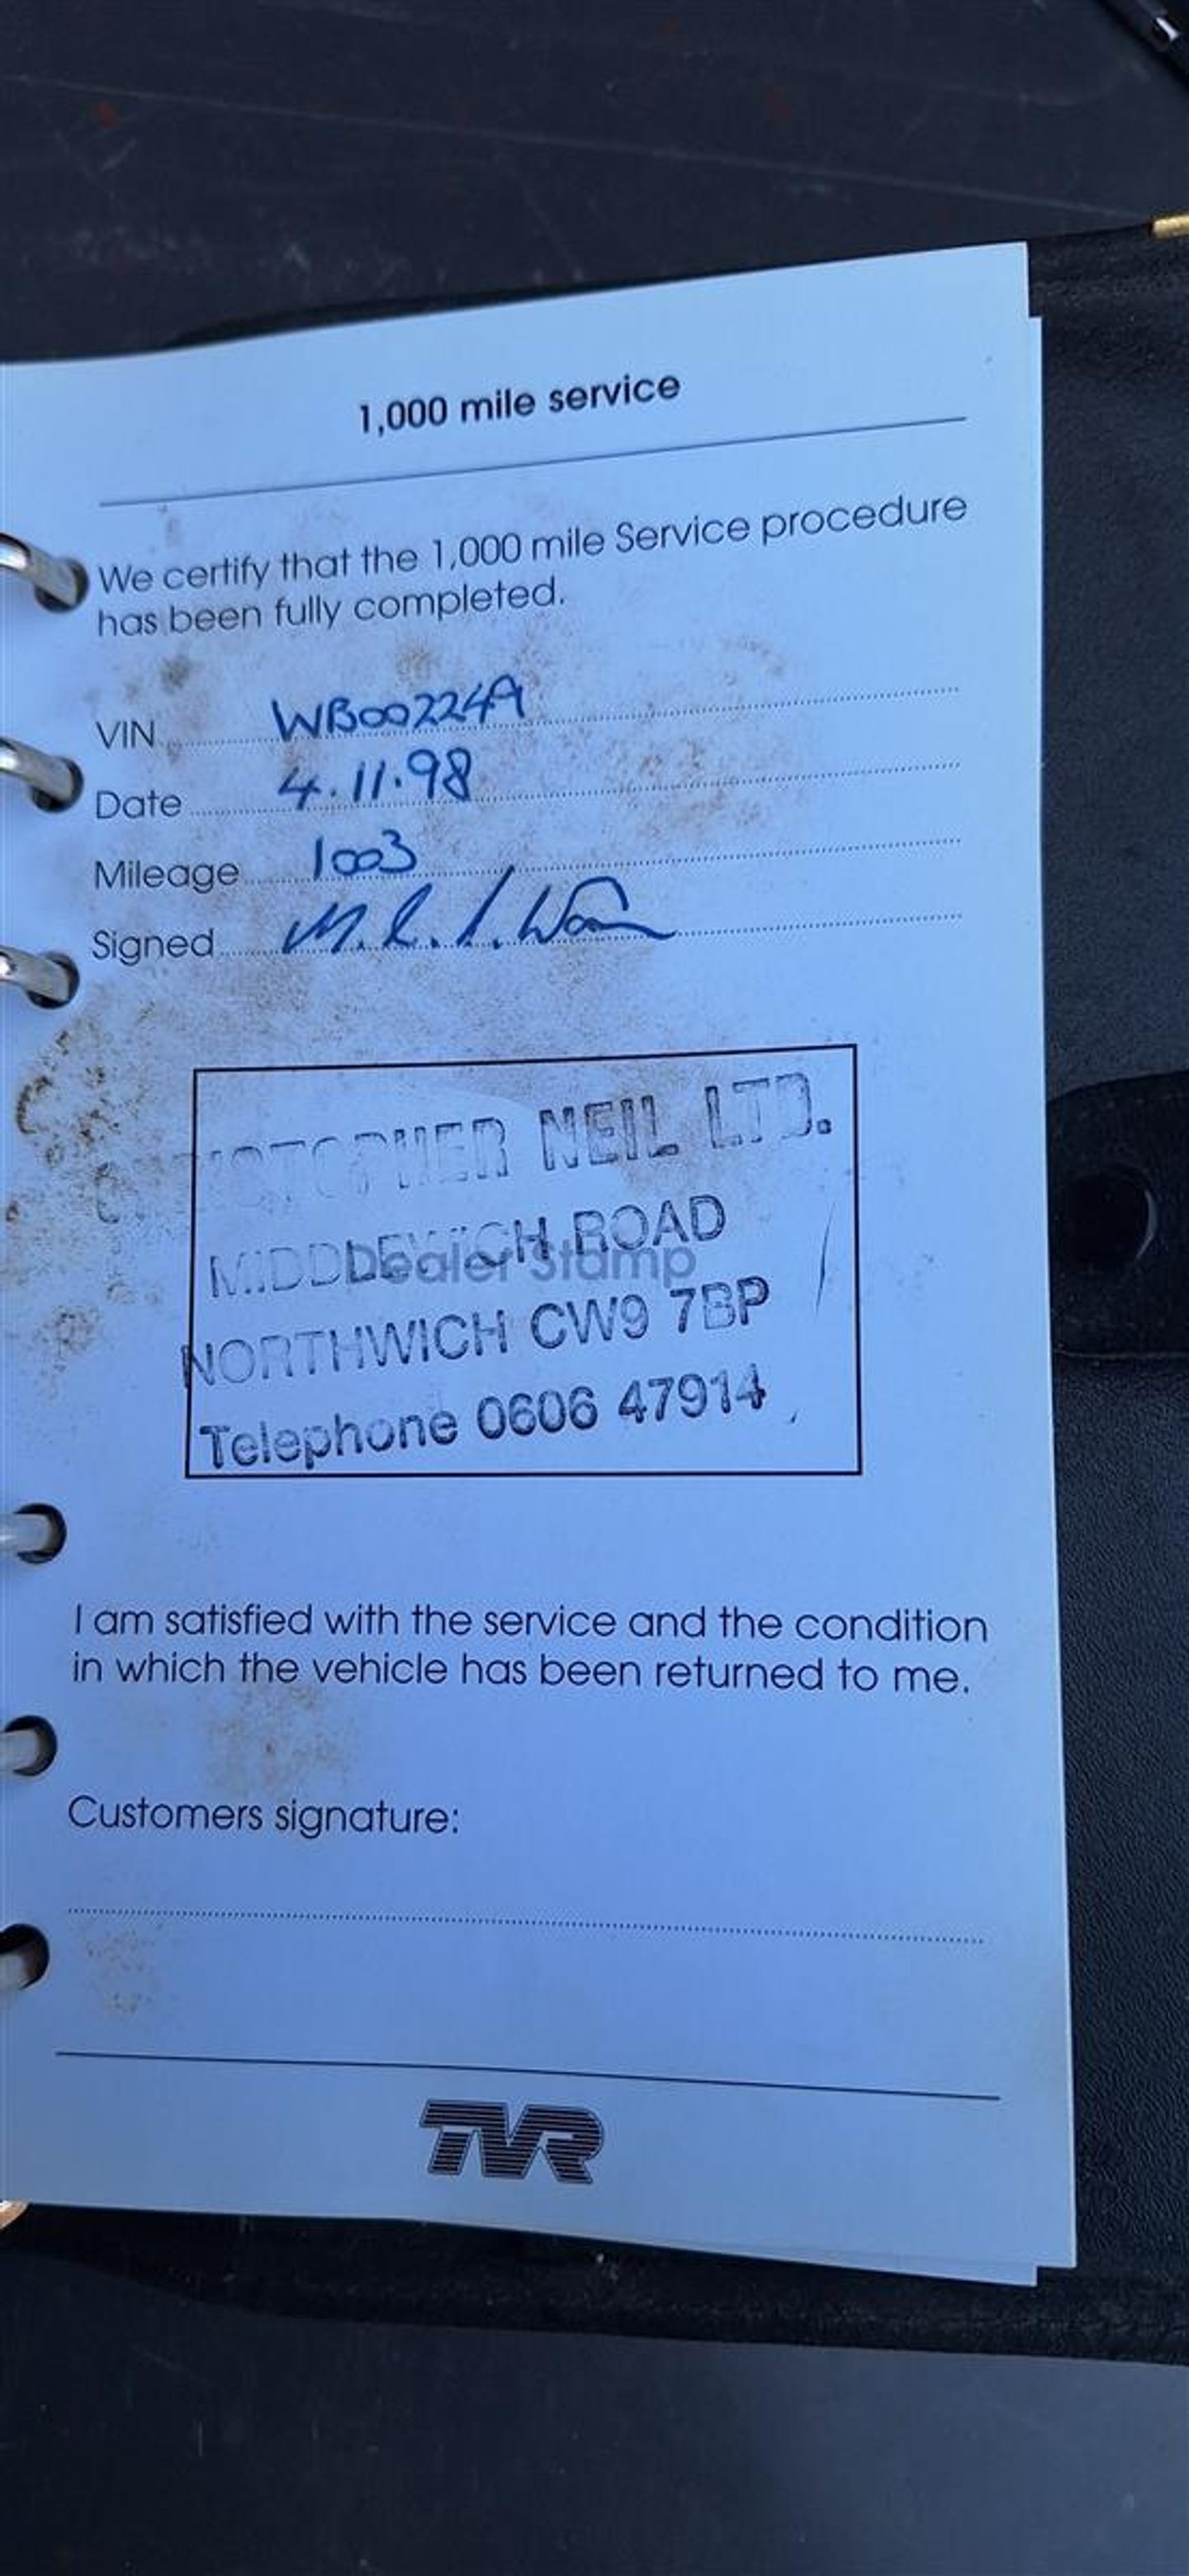 1,000 mile service
We certify that the 1,000 mile Service procedure
has been fully completed.
VIN WB002249
Date 4.11.98
Mileage 1003
Signed
CHRISTOPHER NEIL LTD.
MIDDLEWICH ROAD
Dealer Stamp
NORTHWICH CW9 7BP
Telephone 0606 47914
I am satisfied with the service and the condition
in which the vehicle has been returned to me.
Customers signature:
TVR